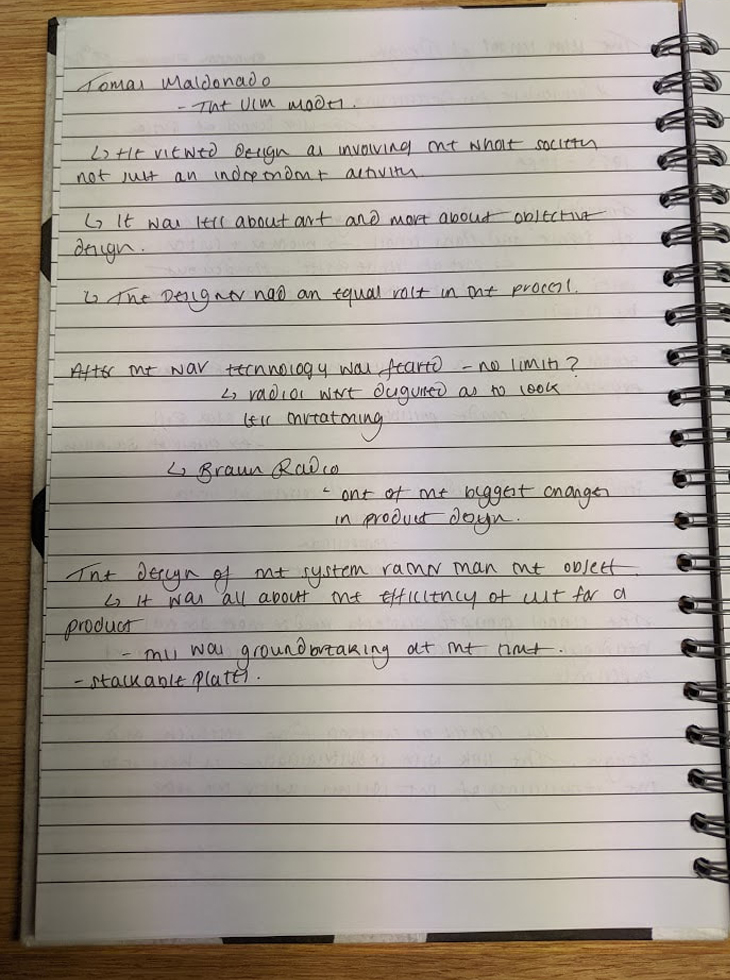 Tomas Maldonado
- The Ulm Model.
↳ He viewed design as involving the whole society
not just an independent activity.
↳ It was less about art and more about objective
design.
↳ The Designer had an equal role in the process.
After the war technology was feared - no limits?
↳ radios were disguised as to look
less threatening
↳ Braun Radio
- one of the biggest changes
in product design.
The design of the system rather than the object.
↳ It was all about the efficiency of use for a
product
- this was groundbreaking at the time.
- stackable plates.